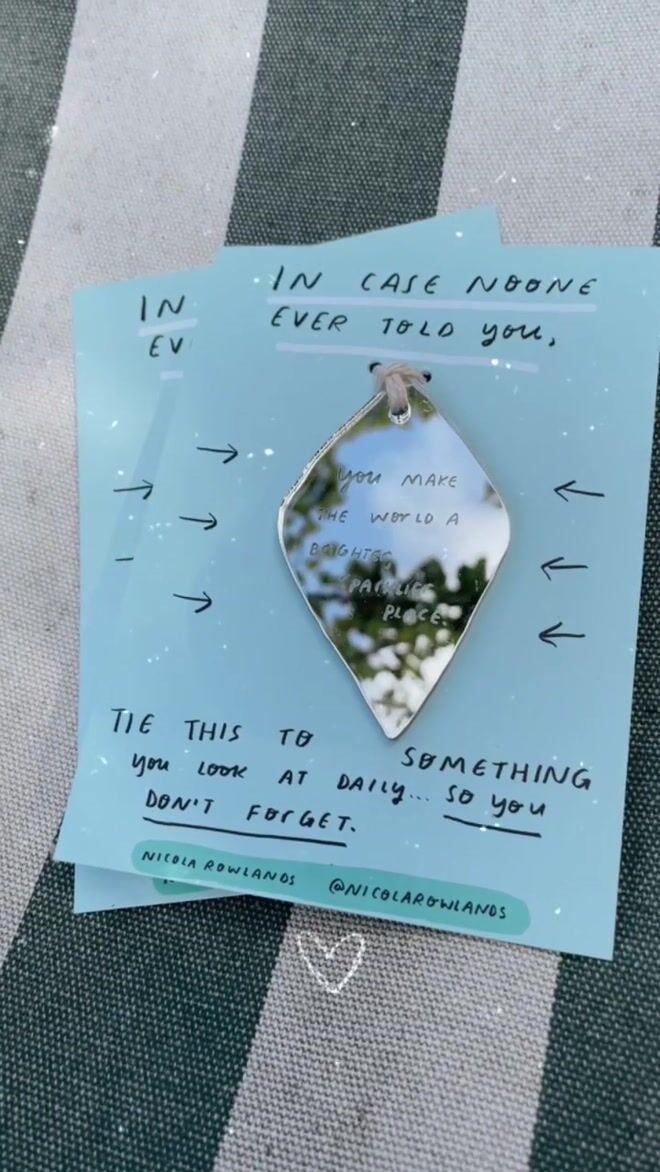 IN CASE NOONE
EVER TOLD you,
you MAKE
THE WORLD A
BRIGHTER,
SPARKLIER
PLACE.
TIE THIS TO SOMETHING
you LOOK AT DAILY... SO you
DON'T FORGET.
NICOLA ROWLANDS @NICOLAROWLANDS
IN
EV